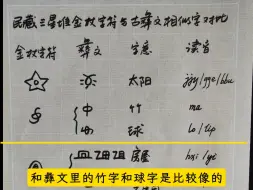 民藏三星堆金杖字符与古彝文相似字对比
金杖字符 彝文 字意 读音
太阳
竹 ma
球 lo/tip
房屋 hxi/yi
和彝文里的竹字和球字是比较像的